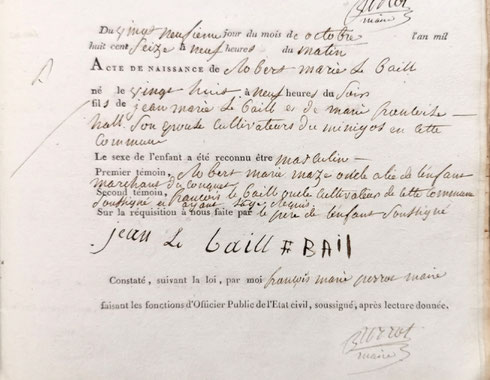 Du vingt neufieme jour du mois de octobre l'an mil
huit cent Seize à neuf heures du matin
ACTE DE NAISSANCE de Robert marie Le Baill
né le vingt huit à neuf heures du Soir
fils de jean marie Le Baill et de marie francoise
Son epouse Cultivateurs du en cette
Commune
Le sexe de l'enfant a été reconnu être masculin
Premier témoin, Robert marie maze oncle de Lenfant
marchand du Conquet
Second témoin, francois Le Baill Cultivateur de Cette Commune
Soussigné et ayant
Sur la réquisition à nous faite par le pere de Lenfant Soussigné
jean Le baill BAIL
Constaté, suivant la loi, par moi françois marie perrot maire
faisant les fonctions d'Officier Public de l'Etat civil, soussigné, après lecture donnée.
perrot
maire